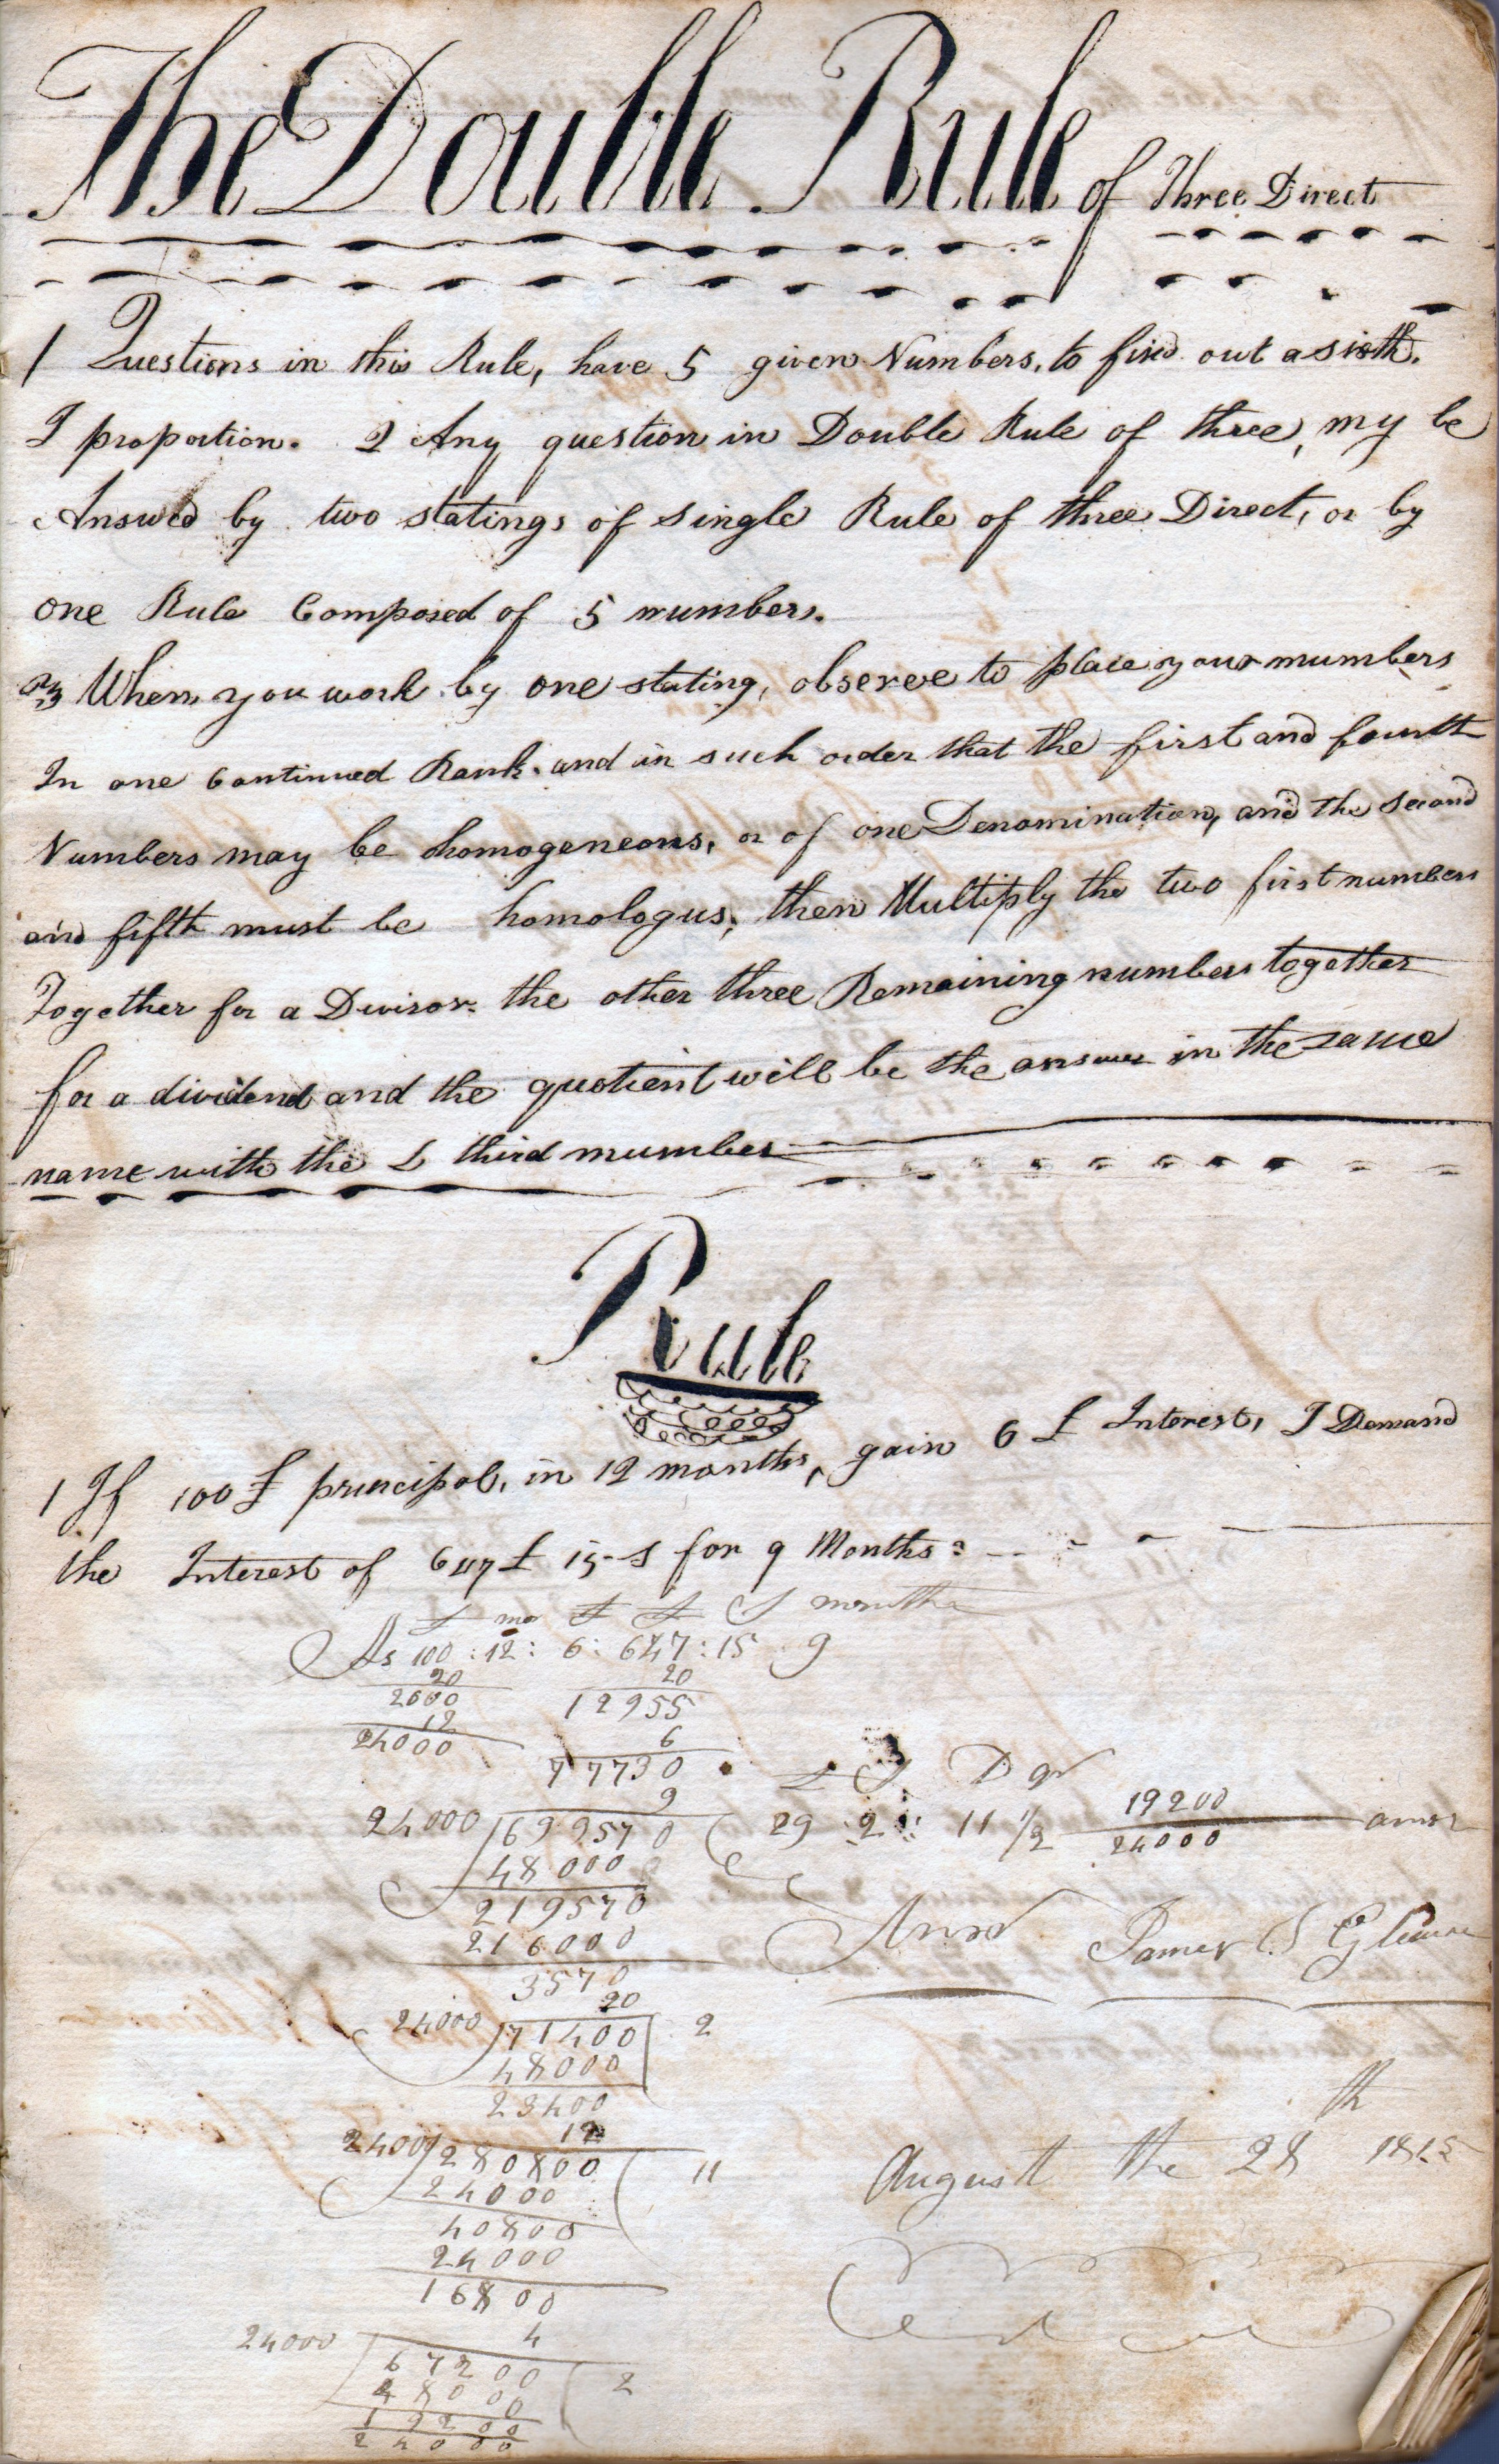 The Double Rule of Three Direct
1 Questions in this Rule, have 5 given Numbers, to find out a sixth.
I proportion. 2 Any question in Double Rule of three, my be
Answed by two statings of single Rule of three Direct, or by
one Rule Composed of 5 numbers.
3 When you work by one stating, observe to place your numbers
In one continued Rank. and in such order that the first and fourth
Numbers may be homogeneous, or of one Denomination, and the second
and fifth must be homologus, then Multiply the two first numbers
Together for a Divisor. the other three Remaining numbers together
for a dividend and the quotient will be the answer in the same
name with the third number
Rule
1 If 100 £ principal, in 12 months, gain 6 £ Interest, I Demand
the Interest of 647 £ 15 S for 9 Months
£ mo £ £ S months
As 100 : 12 : 6 : 647 : 15 9
20 20
2000 12955
12 6
24000 77730
9 £ S D qr
24000 699570 29 2 11 1/2 19200
24000
48000
219570
216000 Answ James
3570
20
24000 71400 2
48000
23400
12
2400 280800 11 August the 28 th 1825
24000
40800
24000
16800
4
24000 67200 2
48000
19200
24000